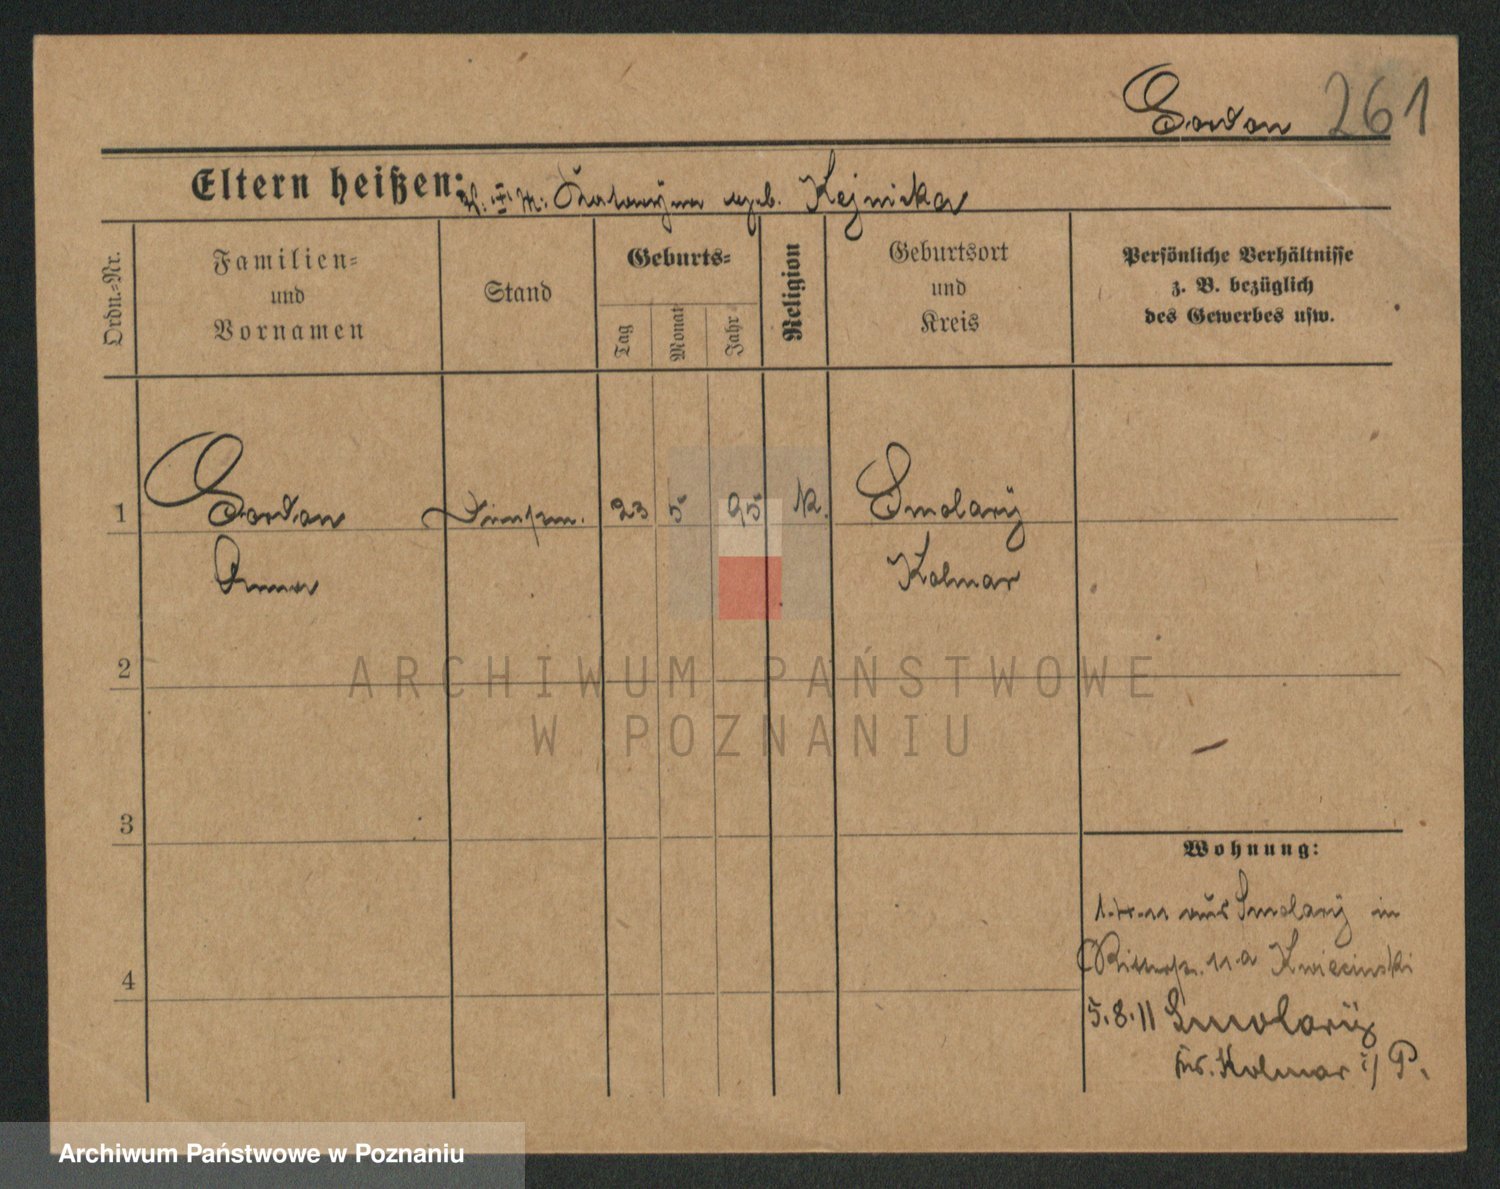 Gordon 261
Eltern heißen: V. M. geb. Kejnicka
Ordn.=Nr.
Familien=
und
Vornamen
Stand
Geburts=
Tag
Monat
Jahr
Religion
Geburtsort
und
Kreis
Persönliche Verhältnisse
z. B. bezüglich
des Gewerbes usw.
1 Gordon 23 5 95 K. Smolary
Anna Kolmar
2
ARCHIWUM PAŃSTWOWE
W POZNANIU
3
Wohnung:
aus Smolary in
11a Kwiecinski
4
5.8.11 Smolary
Krs. Kolmar i/P.
Archiwum Państwowe w Poznaniu